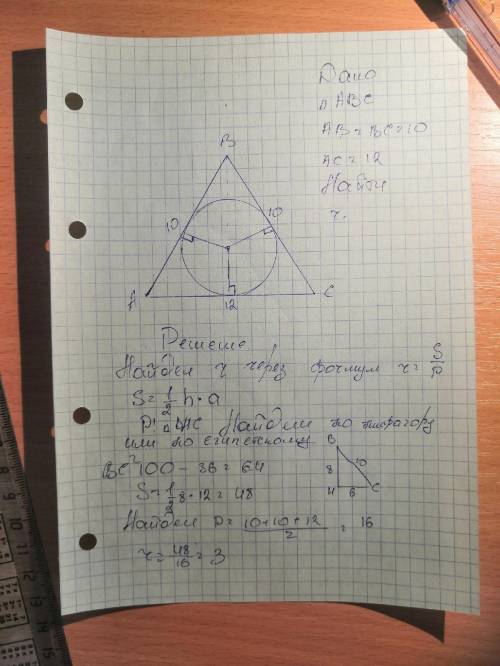 Дано
△ABC
AB=BC=10
AC=12
Найти
r.
B
10
10
A
12
C
Решение
Найдём r через формул r=S/P
S=1/2 h·a
△ Найдем по пифагору
или по египетскому
B
8
10
H
6
C
BC² 100-36=64
S=1/2 8·12=48
Найдем P=10+10+12/2=16
r=48/16=3
10
11
12
13
14
15